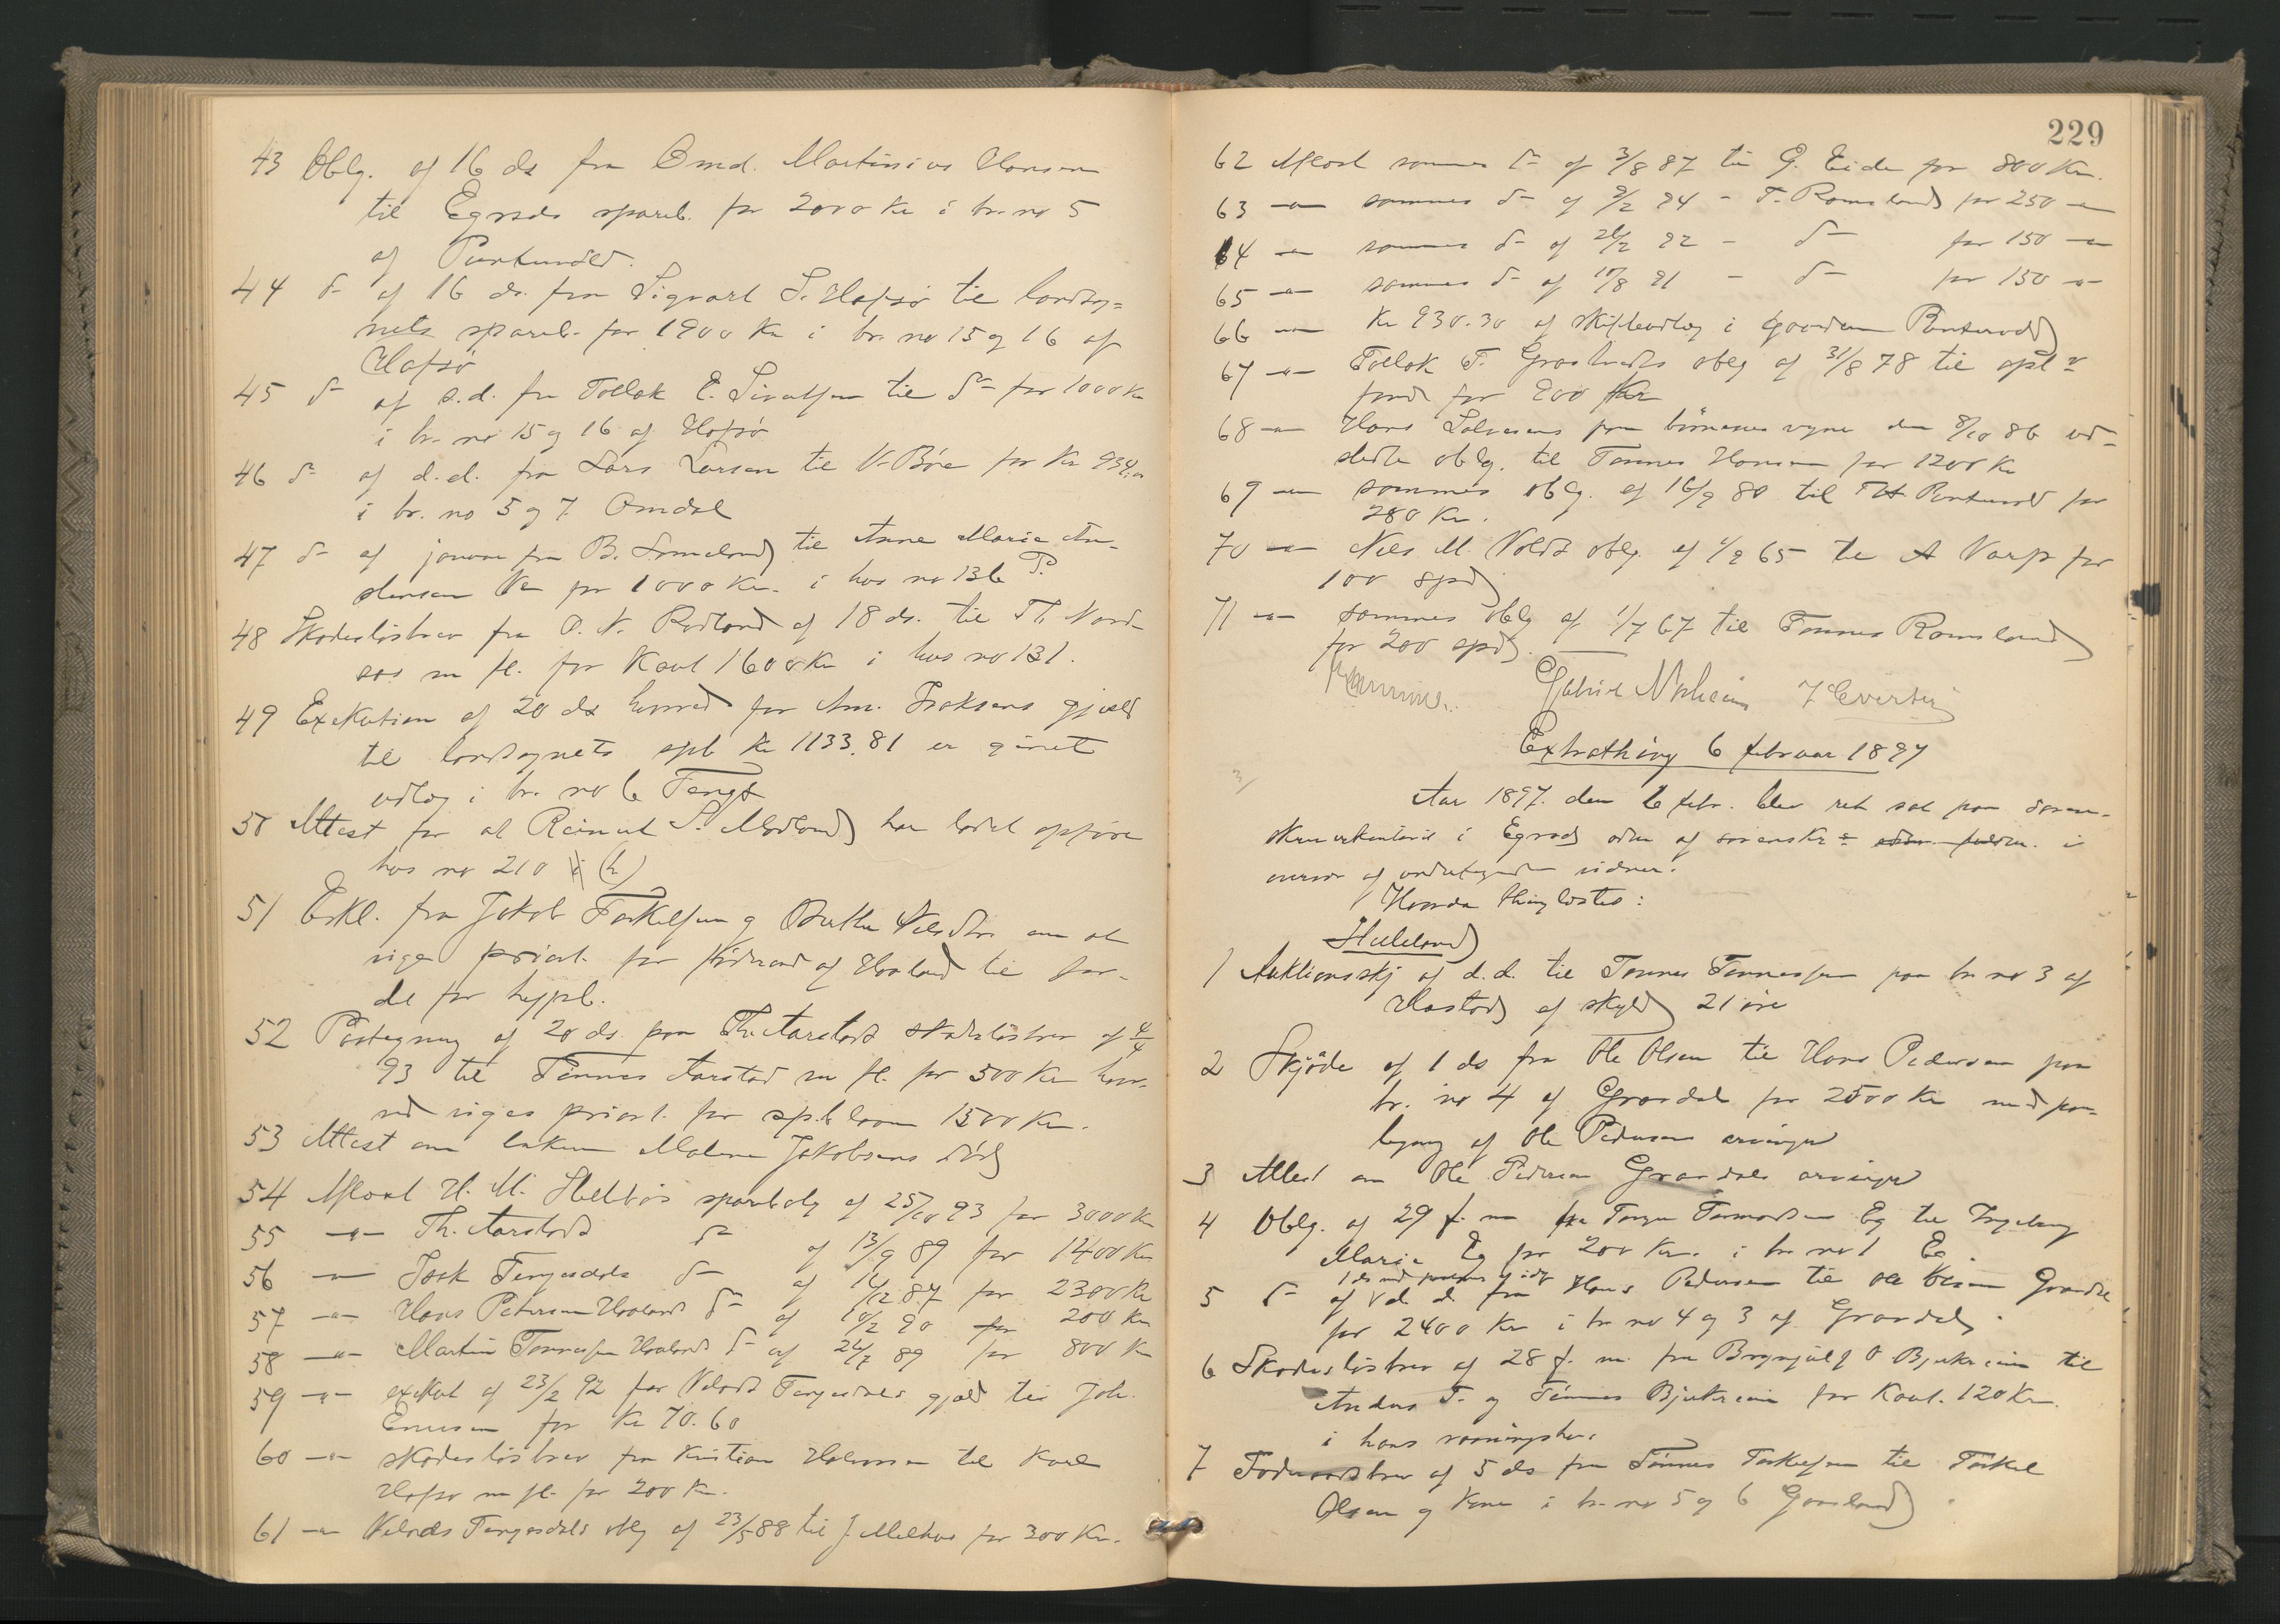 43 Oblg. af 16 ds fra Emd. Martinius Hansen
til Egrsds spareb. for 2000 Kr i br. no 5
af Puntervold.
44 do af 16 ds. fra Sigvart S. Hafsø til landsog=
nets spareb. for 1900 Kr i br. no 15 og 16 af
Hafsø
45 do af s.d. fra Tollak E. Sivertsen til do for 1000 Kr
i br. no 15 og 16 af Hafsø
46 do af d.d. fra Lars Larsen til V. Bøe for Kr 934
i br. no 5 og 7 Omdal
47 do af januar fra B. Sømeland til Anne Marie An-
dersen for 1000 Kr. i hus no 136
48 Skadesløsbrev fra O. N. Rodland af 18 ds. til Th. Nord-
aas m fl. for Kaut 1600 Kr i hus no 131.
49 Exekution af 20 ds hvorved for Am. Isaksens gjæld
til landsognets spb Kr 1133.81 er gjort
udlæg i br. no 6 Tengs
50 Attest for at Reinert S. Modland har ladet opføre
hus no 210 (b)
51 Erkl. fra Jakob Torkelsen og Berthe Nilsdtr. om at
vige priort. for födraad af Hovland til for-
del for hypb.
52 Paategning af 20 ds. paa Th. Aarstads skadesløsbrev af 4/4
93 til Tønnes Aarstad m fl. for 500 Kr hvor-
ved viges priort. for sp.b laan 1500 Kr.
53 Attest om enken Malene Jakobsens död
54 Aflæst H. M. Hellvigs sparebolg af 25/10 93 for 3000 Kr
55 -"- Th. Aarstads do af 13/9 89 for 1400 Kr
56 -"- Isak Tengesdals do af 14/12 87 for 2300 Kr
57 -"- Hans Petersen Hovland do af 10/2 90 for 200 Kr
58 -"- Martin Tønnesen Hovland do af 26/7 89 for 800 Kr
59 -"- exekut af 23/2 92 for Tengesdals gjæld til Joh.
for Kr 70.60
60 -"- skadesløsbrev fra Kristian til Karl
Hafsø m fl. for 200 Kr.
61 -"- Tengesdals oblg af 23/5 88 til J. Melhus for 300 Kr.
229
62 Aflæst sammes do af 3/8 87 til G. Eide for 800 Kr.
63 -"- sammes do af 9/2 94 - T. Ramsland for 250 -"-
64 -"- sammes do af 26/2 92 - do for 150 -"-
65 -"- sammes do af 10/8 91 - do for 150 -"-
66 -"- Kr 930.30 af skifteudlæg i gaarden Puntervold
67 -"- Tollak T. oblg af 31/8 78 til opl
fond for 900 Kr
68 -"- Hans Salvesens paa börnenes vegne den 8/10 86 ud-
stedte oblg. til Tønnes Hansen for 1200 Kr
69 -"- sammes oblg. af 16/9 80 til Puntervold for
280 Kr.
70 -"- Nels M. Volds oblg. af 1/9 65 til A Varp for
100 spd
71 -"- sammes oblg af 1/7 67 til Tønnes Ramsland
for 200 spd.
Extrathing 6 februar 1897
Aar 1897. den 6 febr. blev ret sat paa soren-
skriverkontoret i Egrsd af sorenskr. i
overvær af undertegnede vidner.
Hvorda thinglæstes:
Helleland
1 Auktionsskj af d.d. til Tønnes Tønnessen paa br. no 3 af
Havstad af skyld 21 øre
2 Skjöde af 1 ds fra Ole Olsen til Hans Pedersen paa
br. no 4 af Grøsdal for 2500 Kr med paa-
tegning af Ole Pedersens arvinger
3 Attest om Ole Pedersen Grøsdals arvinger
4 Oblg. af 29 f. m fra Tormodsen Eg til Ingeborg
Marie Eg for 200 Kr. i br. no 1 Eg
5 do af d d. fra Hans Pedersen til Ole Olsen Grøsdal
for 2400 Kr i br no 4 og 3 af Grøsdal.
6 Skadesløsbrev af 28 f. m. fra Brynjulf O Bjerkreim til
Anders T. og Tönnes Bjerkreim for Kaut. 120 Kr.
i hans vaaningshus
7 Föderaadsbrev af 5 ds fra Tönnes Torkelsen til Torkel
Olsen og Kone i br. no 5 og 6